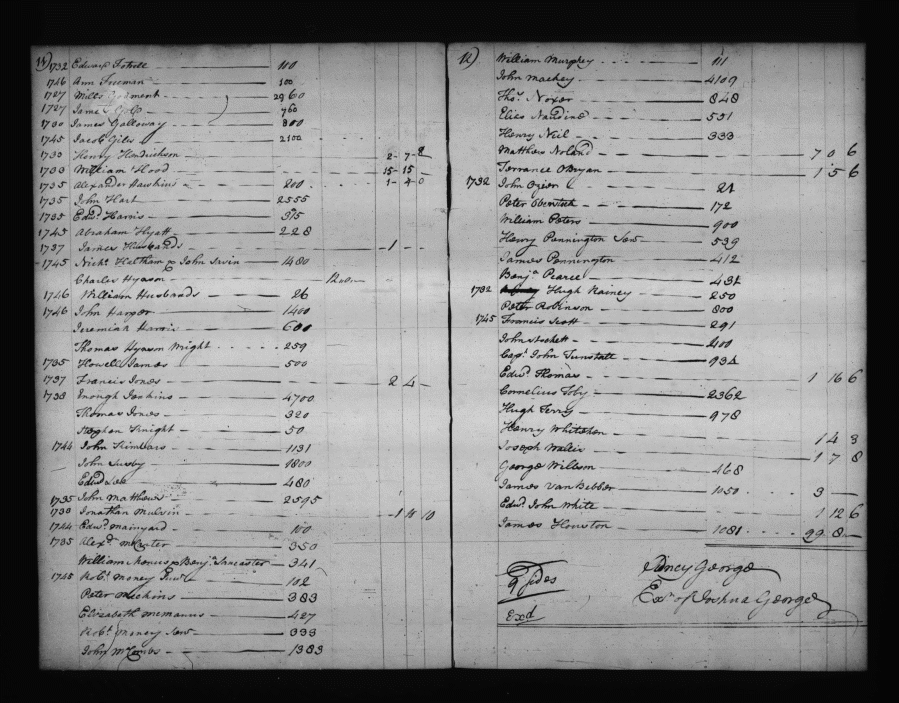 11) 1732 Edward Fottrell 110
1746 Ann Freeman 100
1727 Mills Garment 2960
1727 James 760
1730 James Galloway 800
1745 Jacob Giles 2100
1733 Henry Hendrickson 2 - 7 - 8
1733 William Hood 15 - 15 -
1735 Alexander Hawkins 200 1 - 4 0
1735 John Hart 2555
1735 Edwd Harris 375
1745 Abraham Hyatt 228
1737 James Husbands 1 - -
1745 Nichs Heltham & John Lavin 1480
Charles Hynson
1746 William Husbands 26
1746 John Harper 1400
Jeremiah Harris 600
Thomas Hynson Wright 259
1735 Howell James 500
1737 Francis Jones 2 4 -
1738 Enough Jenkins 4700
Thomas Jones 320
Stephen Knight 50
1744 John Kimbars 1131
John Lusby 1800
Edwd Lee 480
1735 John Matthews 2595
1738 Jonathan Mulvin 1 11 10
1744 Edwd mainyard 100
1735 Alexr 350
William manus & Benjn Lancaster 341
1745 Robt Money 102
Peter Meekins 383
Elizabeth Mcmanus 427
Robt Money Senr 333
John McCombs 1383
12) William Murphey 111
John Mackey 4109
Thos Noxer 848
Elias Nawdine 551
Henry Neil 333
Matthew Noland 7 0 6
Terrance OBryan 1 5 6
1732 John Ozier 21
Peter 172
William Peters 900
Henry Pennington Senr 539
James Pennington 412
Benja Pearce 431
1732 Hugh Rainey 250
Peter Robinson 800
1745 Francis Scott 291
John Stockett 200
Capt John Tunstall 934
Edwd Thomas 1 16 6
Cornelius Toby 2362
Hugh Terry 978
Henry Whitehen 1 4 3
Joseph 1 7 8
George Willson 468
James VanBebber 1050 3 -
Edwd John White 1 12 6
James Houston 1081 99 8 -
9 Sides
Exd
Pincy George
Exr of Joshua George